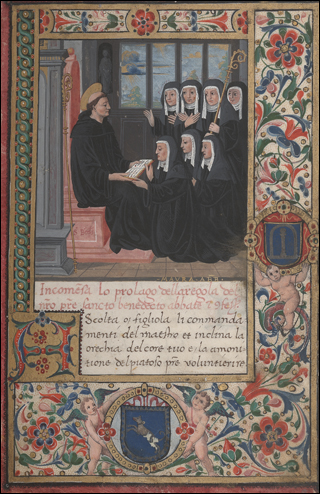 MAVRA·ABB·
Incomēsa lo prologo della regola del
nr̄o pr̄e sancto benedeto abbate
Scolta o figliola li comanda
menti del maestro et inclina la
orechia del core tuo e la amoni
tione del piatoso pr̄e voluntieri re